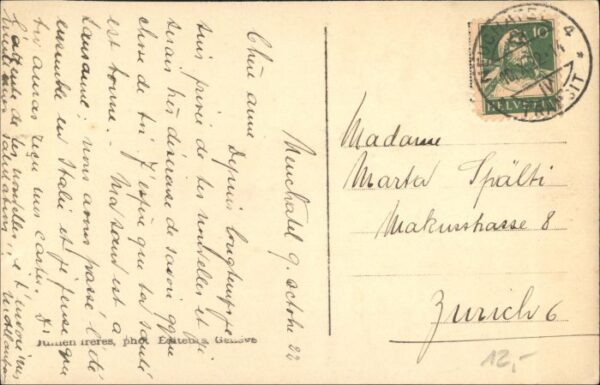 Neuchatel 9. octobre 22
Chère amie
Depuis longtemps je
suis privée de tes nouvelles et je
serais très désireuse de savoir quelque
chose de toi. J'espère que ta santé
est bonne. Ma sœur est a
Lausanne; nous avons passé l'été
ensemble en Italie et je pense que
tu auras reçu mes cartes.
de tes nouvelles, et t'envoie mes
salutations
Madame
Marta Spälti
Makusstrasse 8
Zurich 6
Jullien frères, phot. Editeurs, Genève
10
HELVETIA
NEUCHATEL
TRANSIT
12,-